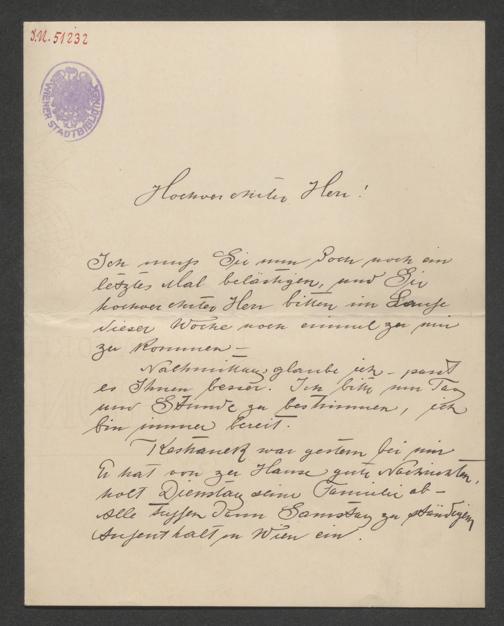 J.N. 51232
WIENER STADTBIBLIOTHEK
Hochverehrter Herr!
Ich muß Sie nun doch noch ein
letztes Mal belästigen, und Sie
hochverehrter Herr bitten im Laufe
dieser Woche noch einmal zu mir
zu kommen –
Nachmittag, glaube ich – passt
es Ihnen besser. Ich bitte nur Tag
und Stunde zu bestimmen, ich
bin immer bereit.
war gestern bei mir
Er hat von zu Hause gute Nachrichten,
holt Dienstag seine Familie ab –
Alle treffen dann Samstag zu ständigem
Aufenthalt in Wien ein.